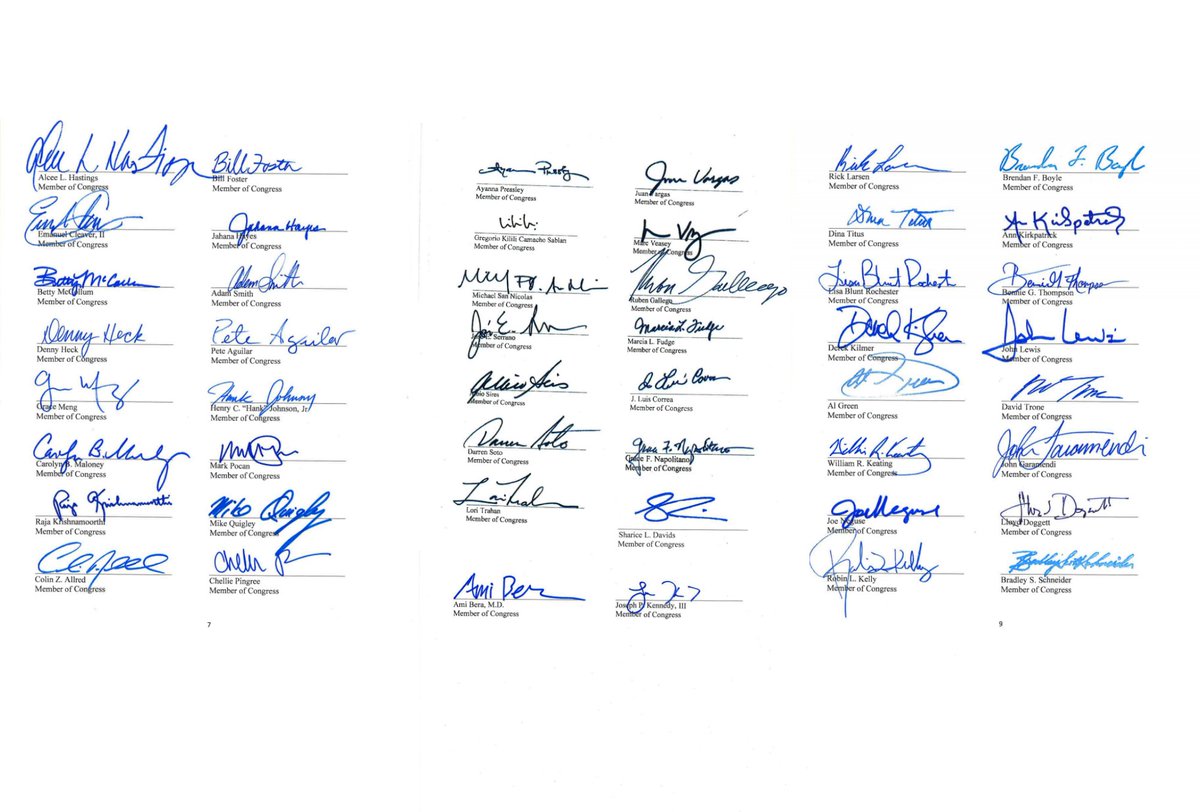 Alcee L. Hastings
Member of Congress
Bill Foster
Bill Foster
Member of Congress
Emanuel Cleaver, II
Member of Congress
Jahana Hayes
Jahana Hayes
Member of Congress
Betty McCollum
Member of Congress
Adam Smith
Adam Smith
Member of Congress
Denny Heck
Denny Heck
Member of Congress
Pete Aguilar
Pete Aguilar
Member of Congress
Grace Meng
Member of Congress
Hank Johnson
Henry C. "Hank" Johnson, Jr.
Member of Congress
Carolyn B. Maloney
Member of Congress
Mark Pocan
Member of Congress
Raja Krishnamoorthi
Raja Krishnamoorthi
Member of Congress
Mike Quigley
Mike Quigley
Member of Congress
Colin Z. Allred
Member of Congress
Chellie Pingree
Member of Congress
7
Ayanna Pressley
Member of Congress
Juan Vargas
Juan Vargas
Member of Congress
Gregorio Kilili Camacho Sablan
Member of Congress
Marc Veasey
Member of Congress
Michael San Nicolas
Member of Congress
Ruben Gallego
Ruben Gallego
Member of Congress
José E. Serrano
Member of Congress
Marcia L. Fudge
Marcia L. Fudge
Member of Congress
Albio Sires
Albio Sires
Member of Congress
J. Luis Correa
Member of Congress
Darren Soto
Darren Soto
Member of Congress
Grace F. Napolitano
Grace F. Napolitano
Member of Congress
Lori Trahan
Lori Trahan
Member of Congress
Sharice L. Davids
Member of Congress
Ami Bera
Ami Bera, M.D.
Member of Congress
Joseph P. Kennedy, III
Member of Congress
Rick Larsen
Rick Larsen
Member of Congress
Brendan F. Boyle
Brendan F. Boyle
Member of Congress
Dina Titus
Dina Titus
Member of Congress
Ann Kirkpatrick
Ann Kirkpatrick
Member of Congress
Lisa Blunt Rochester
Lisa Blunt Rochester
Member of Congress
Bennie G. Thompson
Bennie G. Thompson
Member of Congress
Derek Kilmer
Member of Congress
John Lewis
John Lewis
Member of Congress
Al Green
Al Green
Member of Congress
David Trone
Member of Congress
William R. Keating
Member of Congress
John Garamendi
John Garamendi
Member of Congress
Joe Neguse
Joe Neguse
Member of Congress
Lloyd Doggett
Lloyd Doggett
Member of Congress
Robin L. Kelly
Robin L. Kelly
Member of Congress
Bradley S. Schneider
Member of Congress
9